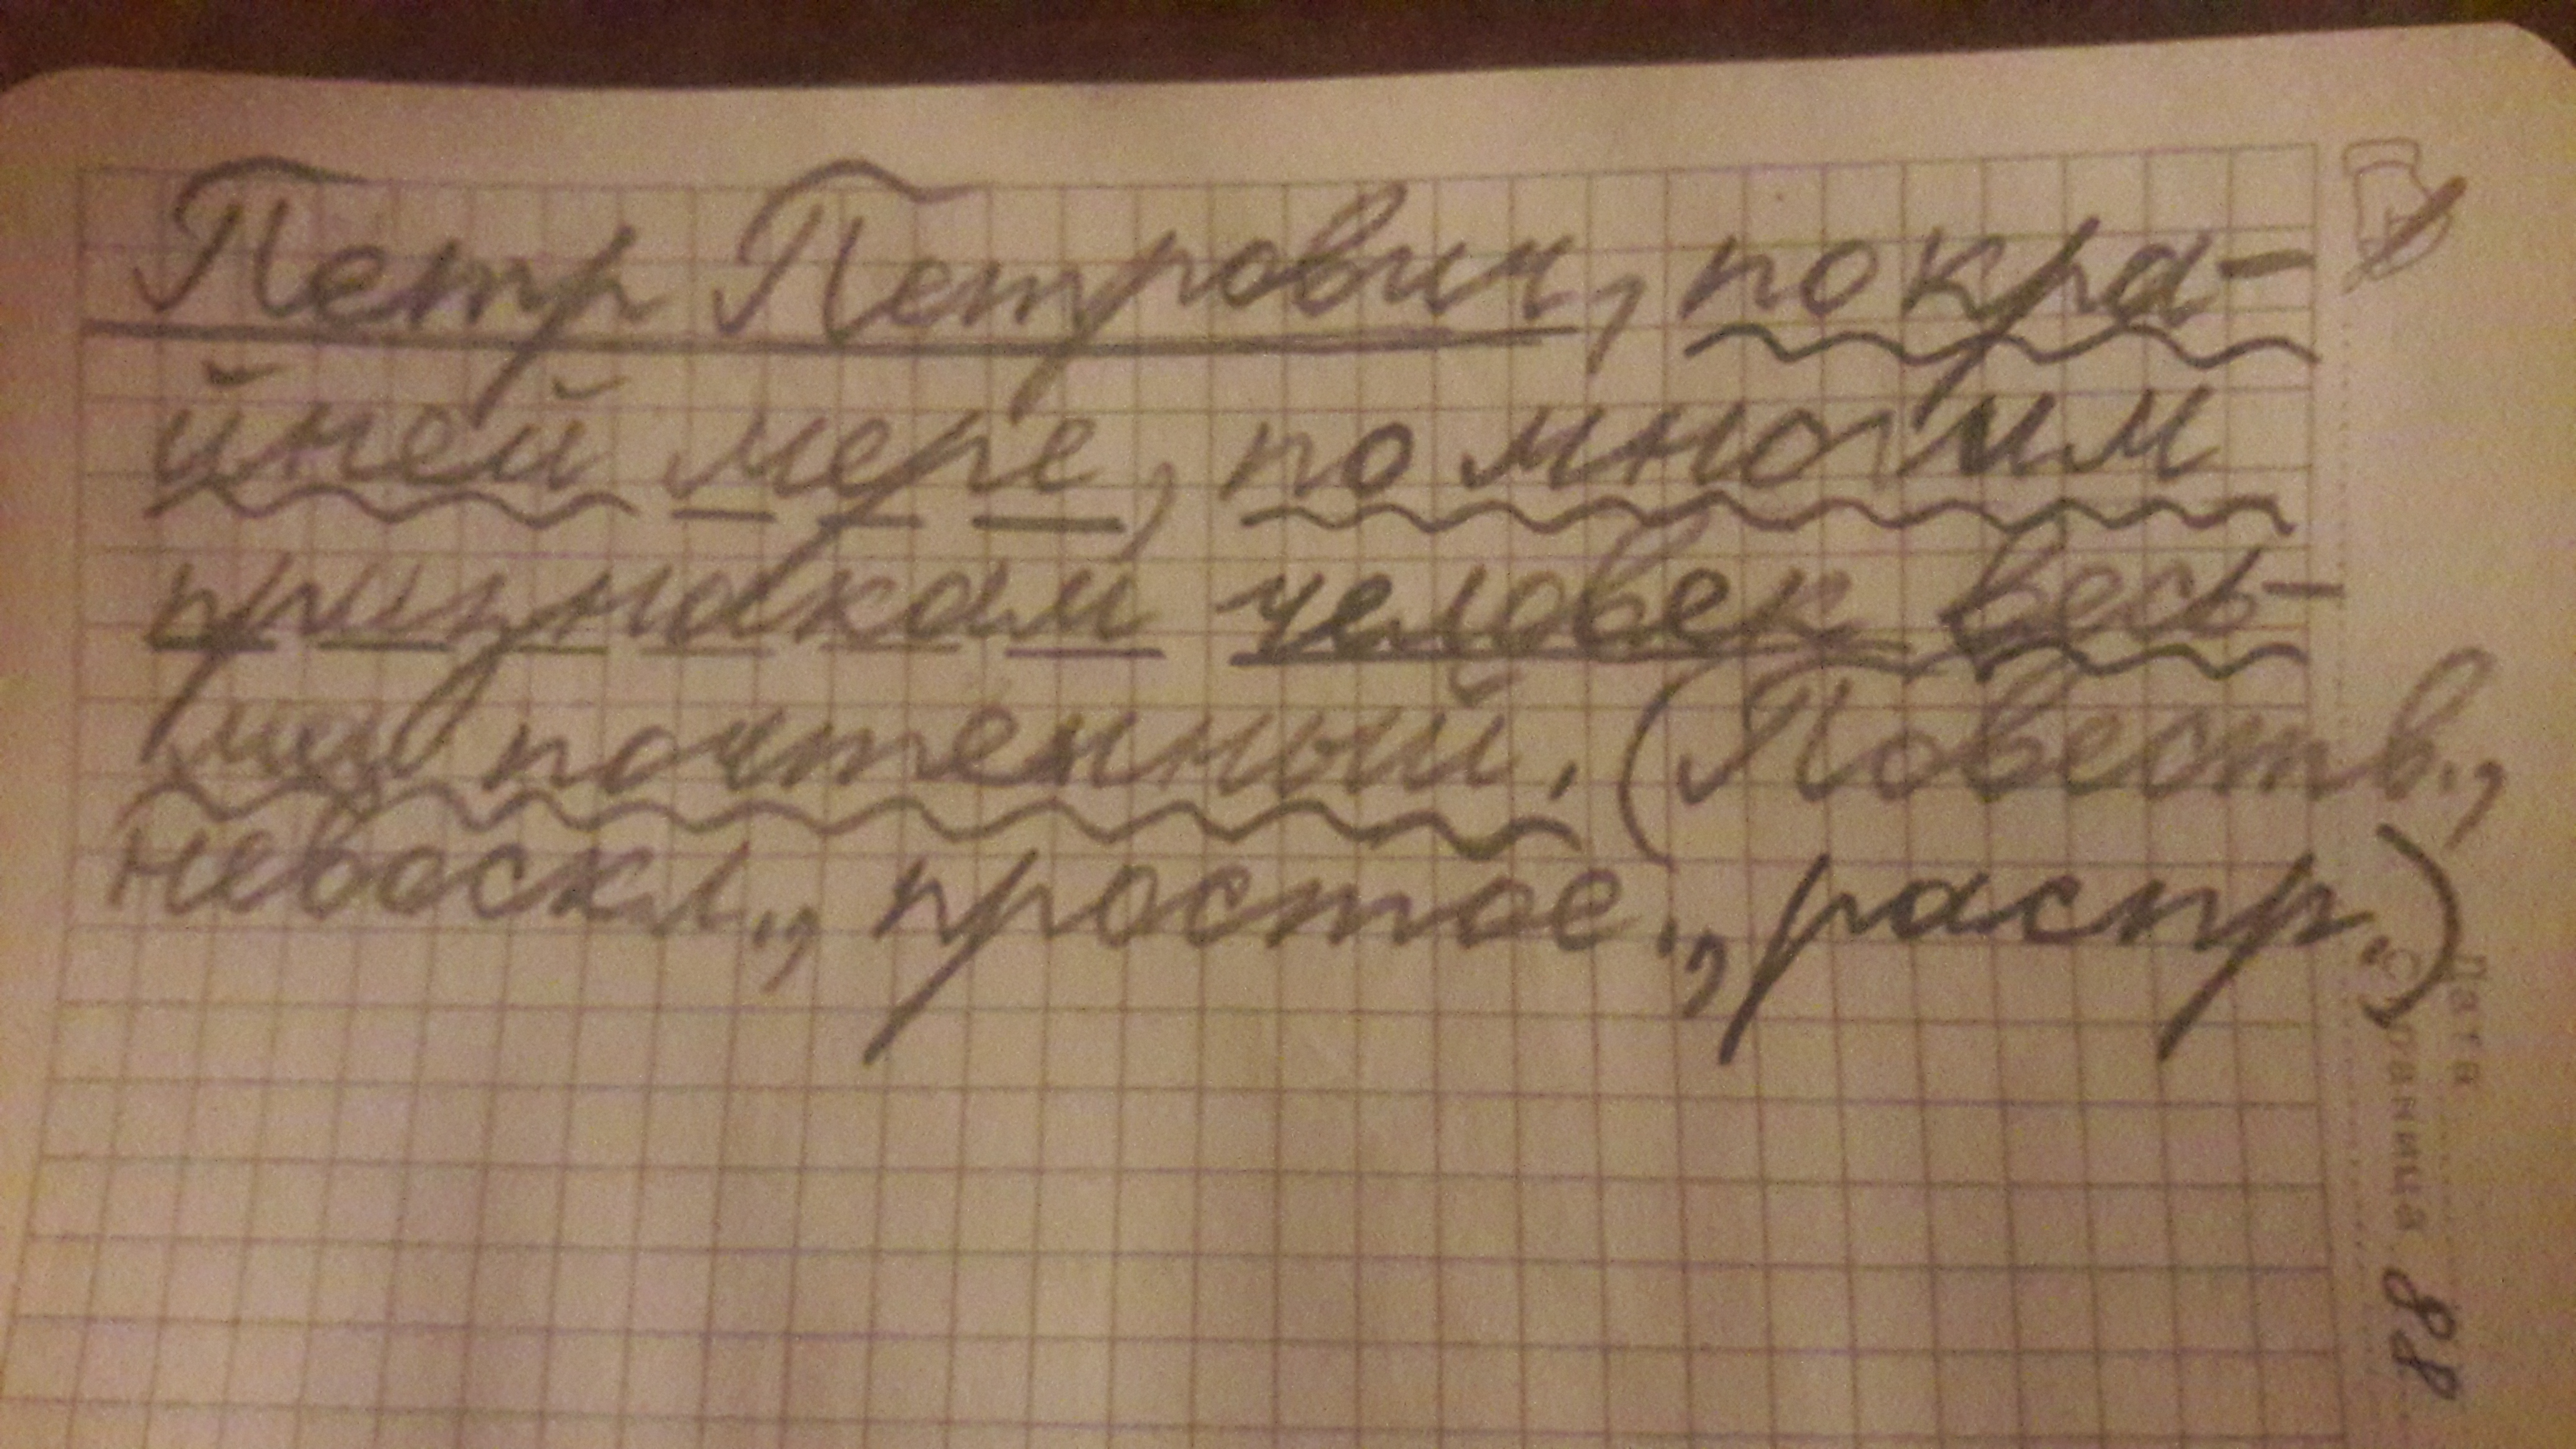 Петр Петрович, по кра-
йней мере, по многим
признакам человек весь-
ма почтенный. (Повеств.,
невоскл., простое., распр.)
Дата
Страница 88